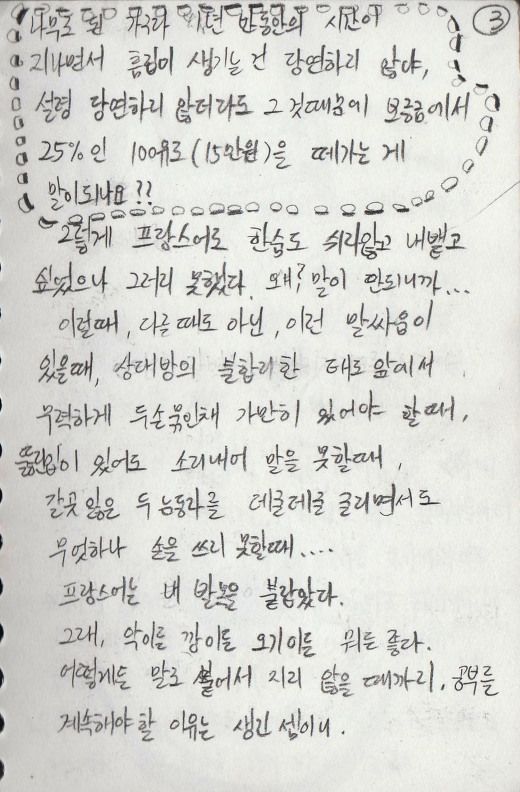 ③
나무로 된 가구라 1년 반동안의 시간이
지나면서 흠집이 생기는 건 당연하지 않아,
설령 당연하지 않더라도 그것때문에 보증금에서
25%인 100유로(15만원)을 떼가는 게
말이되나요??
그렇게 프랑스어로 한숨도 쉬지않고 내뱉고
싶었으나 그러지 못했다. 왜? 말이 안되니까...
이럴때, 다른때도 아닌, 이런 말싸움이
있을때, 상대방의 불합리한 태도 앞에서
무력하게 두손묶인채 가만히 있어야 할때,
뚫린입이 있어도 소리내어 말을 못할때,
갈곳 잃은 두 눈동자를 데굴데굴 굴리면서도
무엇하나 손을 쓰지 못할때....
프랑스어는 내 발목을 붙잡았다.
그래, 악이든 깡이든 오기이든 뭐든 좋다.
어떻게든 말로 붙어서 지지 않을 때까지, 공부를
계속해야할 이유는 생긴 셈이니.